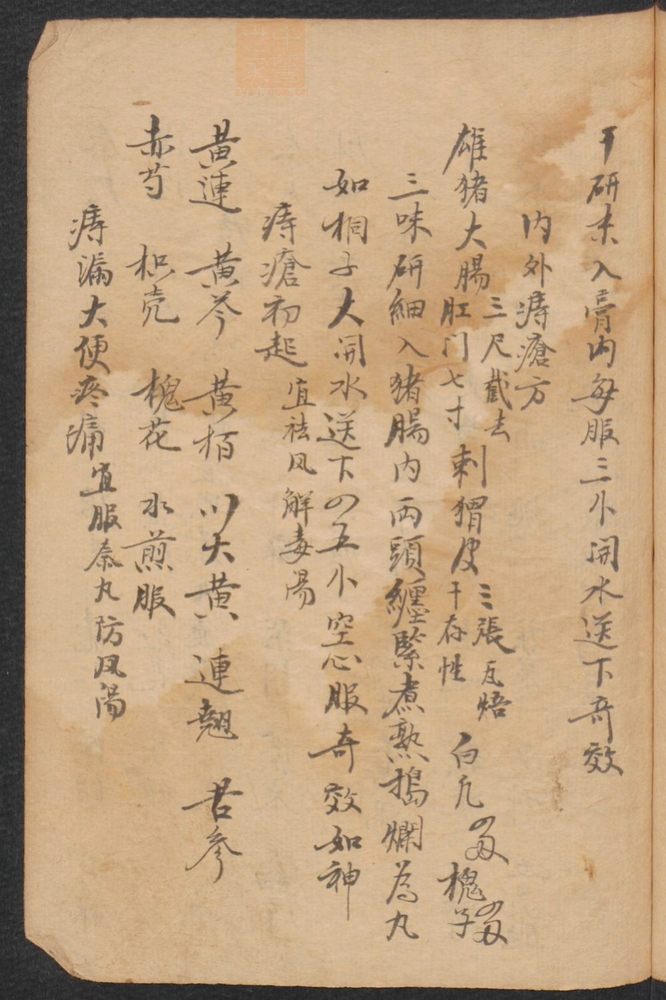 干研末入膏内每服三小開水送下奇效
内外痔瘡方
雄猪大腸三尺截去肛门七寸 刺猬皮三張瓦焙干存性 白凡 槐子
三味研細入猪腸内両頭纏緊煮熟搗爛為丸
如桐子大開水送下四五小空心服奇效如神
痔瘡初起 宜祛风解毒湯
黄連 黄芩 黄栢 川大黄 連翹 苦參
赤芍 枳壳 槐花 水煎服
痔漏大便疼痛 宜服秦丸防风湯